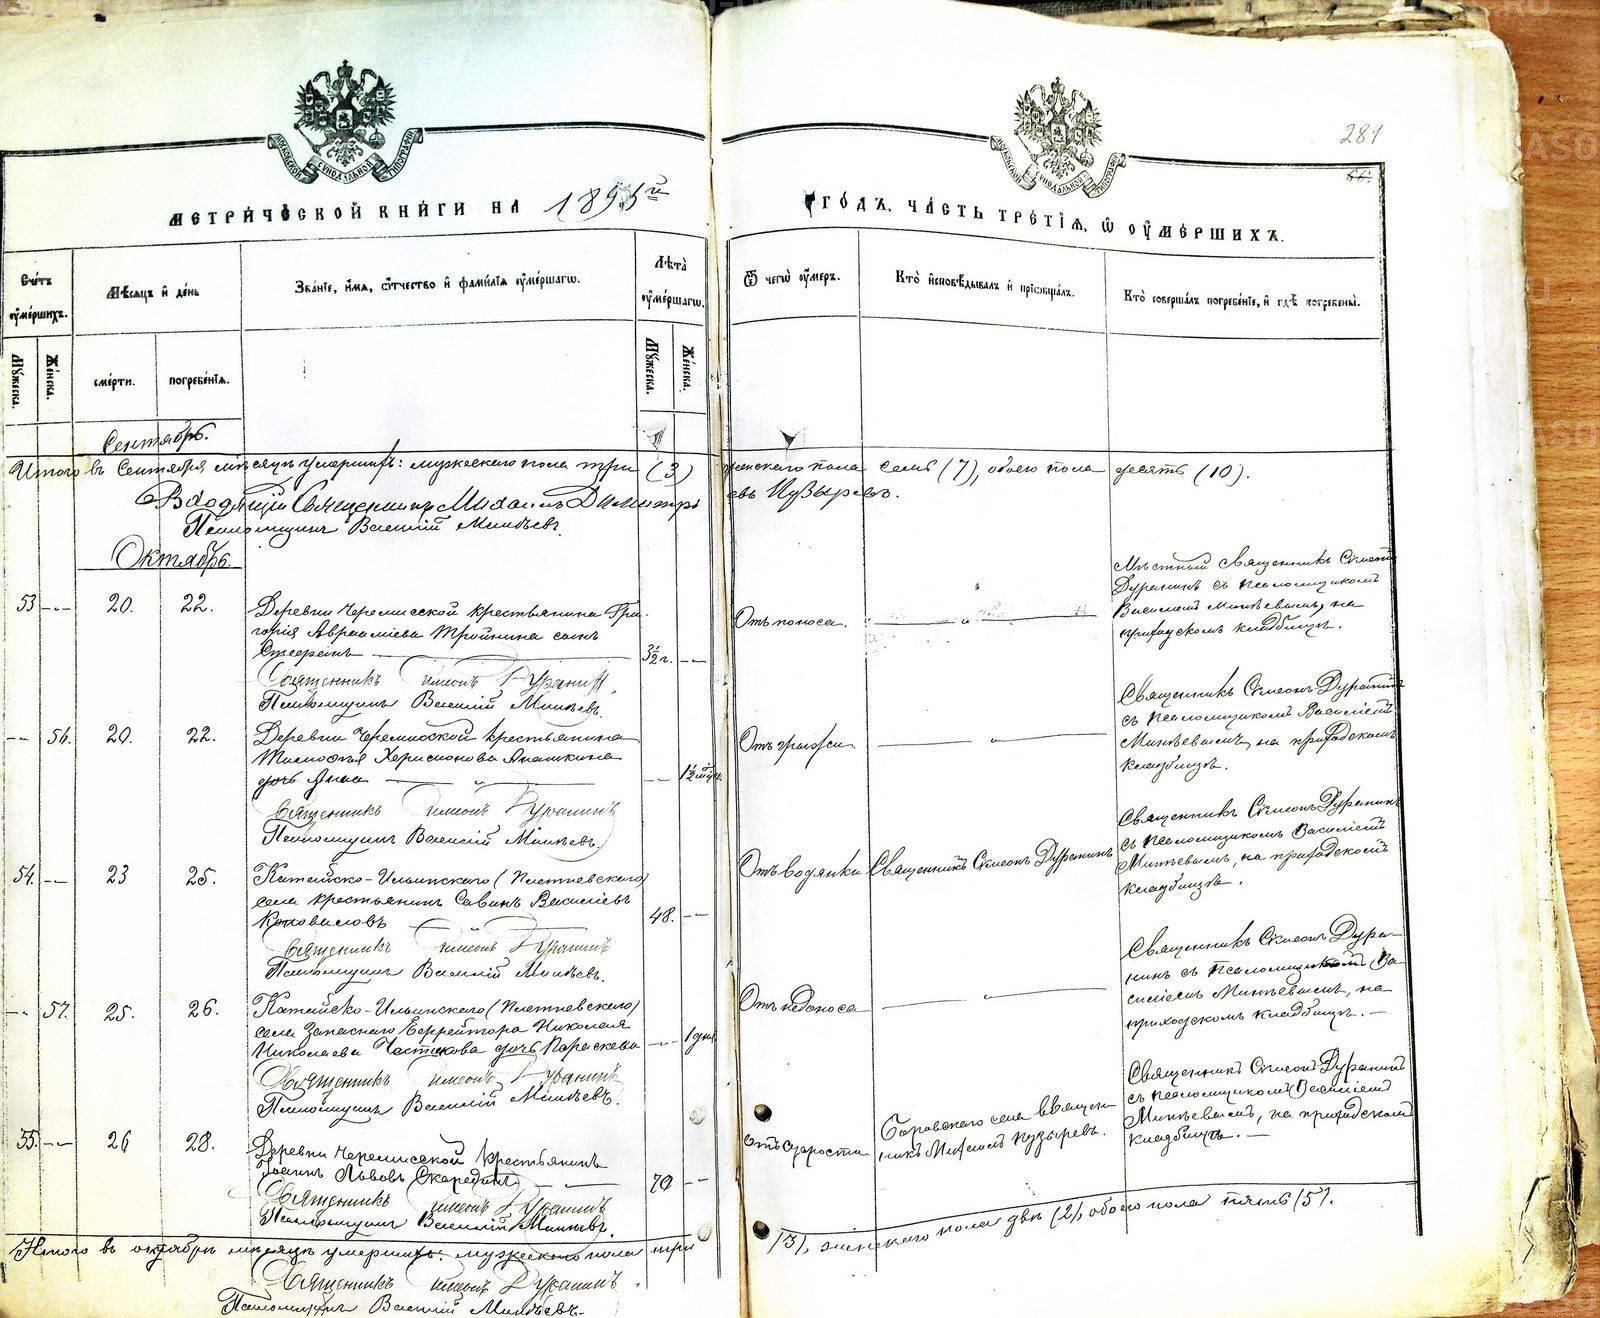 МОСКОВСКОЙ СѴНОДАЛЬНОЙ ТИПОГРАФІИ
МОСКОВСКОЙ СѴНОДАЛЬНОЙ ТИПОГРАФІИ
281
МЕТРИЧЕСКОЙ КНИГИ НА 1895й
ГОДЪ, ЧАСТЬ ТРЕТІЯ, Ѡ ОУМЕРШИХЪ.
Счетъ оумершихъ.
Мѣсяцъ и день
Званіе, имя, отчество и фамилія оумершагѡ.
Лѣта оумершагѡ.
Ѿ чегѡ оумеръ.
Кто исповѣдывалъ и пріобщалъ.
Кто совершалъ погребеніе, и гдѣ погребены.
Мужеска.
Женска.
смерти.
погребенія.
Мужеска.
Женска.
Сентябрь.
Итого въ Сентябрѣ мѣсяцѣ умершихъ: мужескаго пола три (3) женскаго пола семь (7), обоего пола десять (10).
Священникъ Михаилъ Димитріевъ Пузыревъ.
Псаломщикъ Василій Минѣевъ.
Октябрь.
53 -"- 20. 22.
Деревни Черемисской крестьянина Гри-
горія Авраамієва Тройнина сынъ
Стефанъ
3½ г. -"-
Отъ поноса.
Мѣстный священникъ Симеонъ
Дуранинъ съ псаломщикомъ
Василіемъ Минѣевымъ, на
приходскомъ кладбищѣ.
Священникъ Симеонъ Дуранинъ.
Псаломщикъ Василій Минѣевъ.
-"- 56. 20. 22.
Деревни Черемисской крестьянина
дочь Анна
-"- 1½
Отъ грыжи.
Священникъ Симеонъ Дуранинъ
съ псаломщикомъ Василіемъ
Минѣевымъ, на приходскомъ
кладбищѣ.
Священникъ Симеонъ Дуранинъ
Псаломщикъ Василій Минѣевъ.
54. -"- 23 25.
Катайско-Ильинскаго (Плетневскаго)
села крестьянинъ Савинъ Василіевъ
Коноваловъ
48. -"-
Отъ водянки
Священникъ Симеонъ Дуранинъ
Священникъ Симеонъ Дуранинъ
съ псаломщикомъ Василіемъ
Минѣевымъ, на приходскомъ
кладбищѣ.
Священникъ Симеонъ Дуранинъ
Псаломщикъ Василій Минѣевъ.
-"- 57. 25. 26.
Катайско-Ильинскаго (Плетневскаго)
села запаснаго Ефрейтора Николая
Николаева Частикова дочь Параскева
-"- 1 дня
Отъ недоноса
Священникъ Симеонъ Дура-
нинъ съ псаломщикомъ Ва-
силіемъ Минѣевымъ, на
приходскомъ кладбищѣ.
Священникъ Симеонъ Дуранинъ
Псаломщикъ Василій Минѣевъ.
55. -"- 26 28.
Деревни Черемисской крестьянинъ
Іоаннъ Львовъ Скарединъ
70 -"-
отъ старости
Боровскаго села священ-
никъ Михаилъ Пузыревъ.
Священникъ Симеонъ Дуранинъ
съ псаломщикомъ Василіемъ
Минѣевымъ, на приходскомъ
кладбищѣ.
Священникъ Симеонъ Дуранинъ
Псаломщикъ Василій Минѣевъ.
Итого въ октябрѣ мѣсяцѣ умершихъ: мужескаго пола три (3), женскаго пола двѣ (2), обоего пола пять (5).
Священникъ Симеонъ Дуранинъ.
Псаломщикъ Василій Минѣевъ.